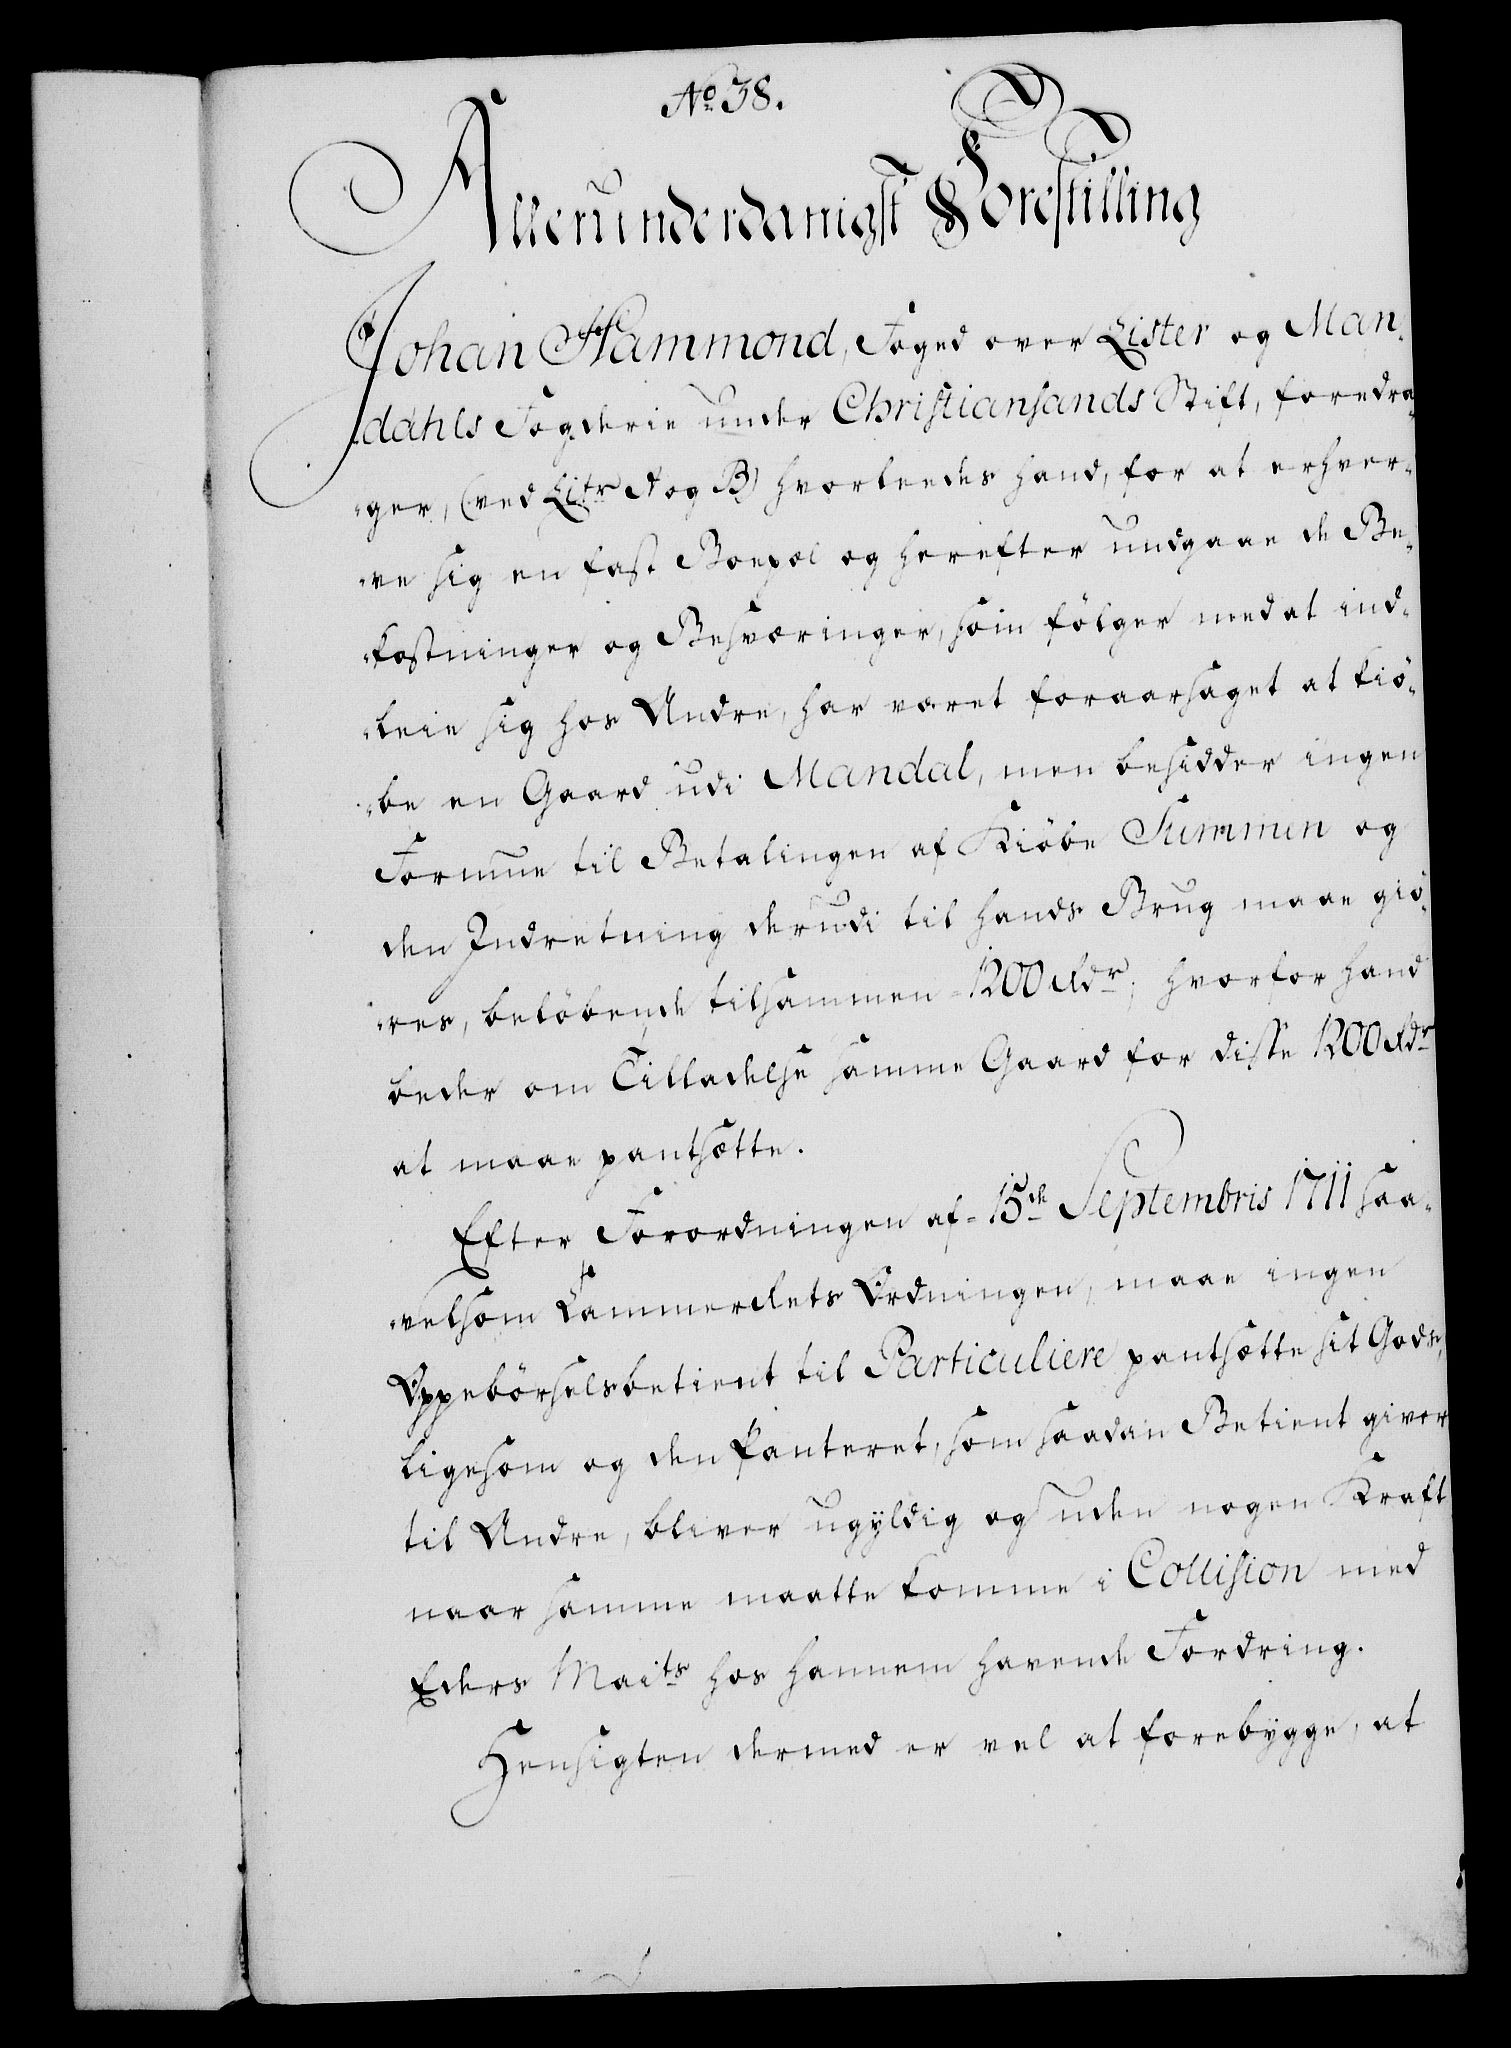 No 38.
Allerunderdanigst Forestilling
Johan Hammond, Foged over Lister og Man-
-dahls Fogderie under Christiansands Stift, foredra-
-ger, (ved Litr A og B) hvorledes hand, for at erhver-
-ve sig en fast Boepæl og herefter undgaae de Be-
-kostninger og Besværinger, som fölger med at ind-
-leie sig hos Andre, har været foraarsaget at kiö-
-be en Gaard udi Mandal, men besidder ingen
Formue til Betalingen af Kiöbe Summen og
den Indretning derudi til hands Brug maae giö-
-res, belöbende tilsammen 1200 Rdr; hvorfor hand
beder om Tilladelse samme Gaard for disse 1200 Rdr
at maae pantsætte.
Efter Forordningen af 15de Septembris 1711 saa-
-velsom Cammer Rets Ordningen, maae ingen
Oppebörselsbetient til Particuliere pantsætte sit Gods,
ligesom og den Panteret, som saadan Betient giver
til Andre, bliver ugyldig og uden nogen Kraft
naar samme maatte komme i Collision med
Eders Maits hos hannem havende Fordring.
Hensigten dermed er vel at forebygge, at